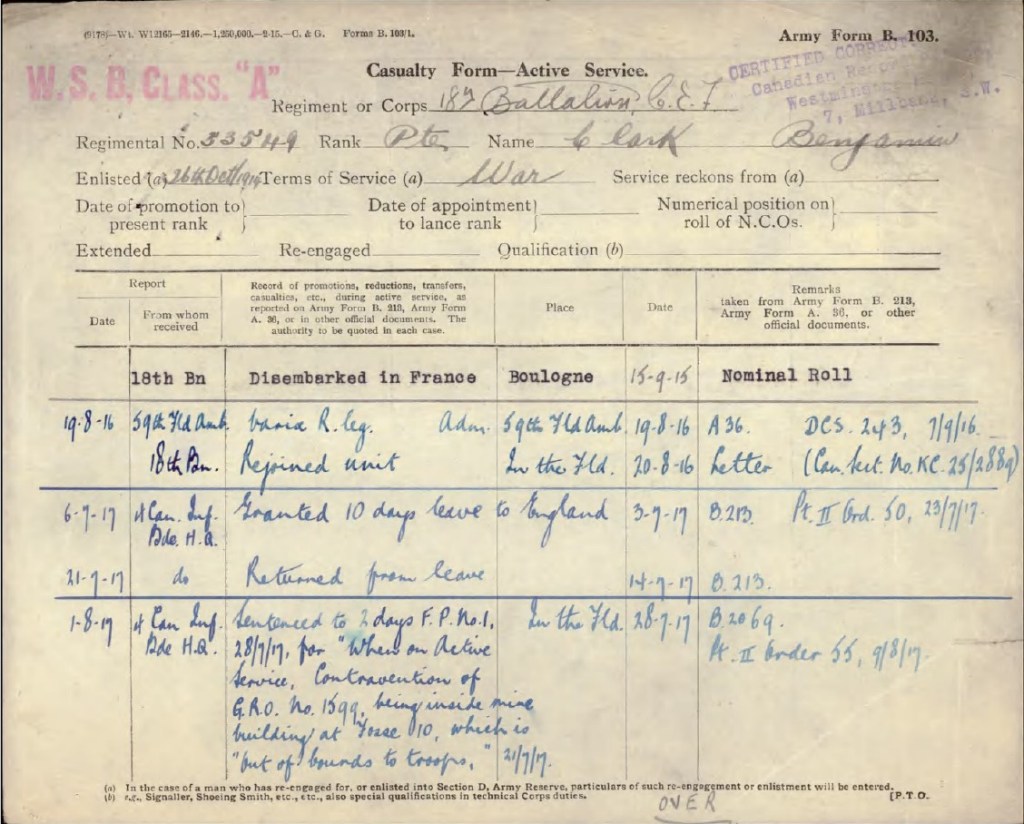 (9178)—Wt. W12165—2146.—1,250,000.—2-15.—C. & G. Forms B. 103/1.
Army Form B. 103.
W.S.B. CLASS. "A"
CERTIFIED CORRECT
Canadian Record
Westminster
7, Millbank, S.W.
Casualty Form—Active Service.
Regiment or Corps 18th Battalion, C.E.F
Regimental No. 53549 Rank Pte, Name Clark Benjamin
Enlisted (a) 26th Oct/1914 Terms of Service (a) War Service reckons from (a)
Date of promotion to present rank } Date of appointment to lance rank } Numerical position on roll of N.C.Os. }
Extended Re-engaged Qualification (b)
Report
Date
From whom received
Record of promotions, reductions, transfers, casualties, etc., during active service, as reported on Army Form B. 213, Army Form A. 36, or in other official documents. The authority to be quoted in each case.
Place
Date
Remarks
taken from Army Form B. 213, Army Form A. 36, or other official documents.
18th Bn Disembarked in France Boulogne 15-9-15 Nominal Roll
19-8-16 59th Fld Amb. Varix R. leg. Adm. 59th Fld Amb. 19-8-16 A36. DCS. 243, 7/9/16.
18th Bn. Rejoined unit In the Fld. 20-8-16 Letter (Can. Sect. No. KC. 25/2889)
6-7-17 4 Can. Inf. Bde. H.Q. Granted 10 days leave to England 3-7-17 B.213. Pt. II Ord. 50, 23/7/17.
21-7-17 do Returned from leave 14-7-17 B.213.
1-8-17 4 Can Inf. Bde H.Q. Sentenced to 2 days F.P. No.1, In the Fld. 28-7-17 B.2069.
28/7/17, for "When on Active Pt. II Order 55, 9/8/17.
Service, Contravention of
G.R.O. No. 1599, being inside mine
building at Fosse 10, which is
"out of bounds to troops," 21/7/17.
(a) In the case of a man who has re-engaged for, or enlisted into Section D, Army Reserve, particulars of such re-engagement or enlistment will be entered.
(b) e.g., Signaller, Shoeing Smith, etc., etc., also special qualifications in technical Corps duties. [P.T.O.
OVER